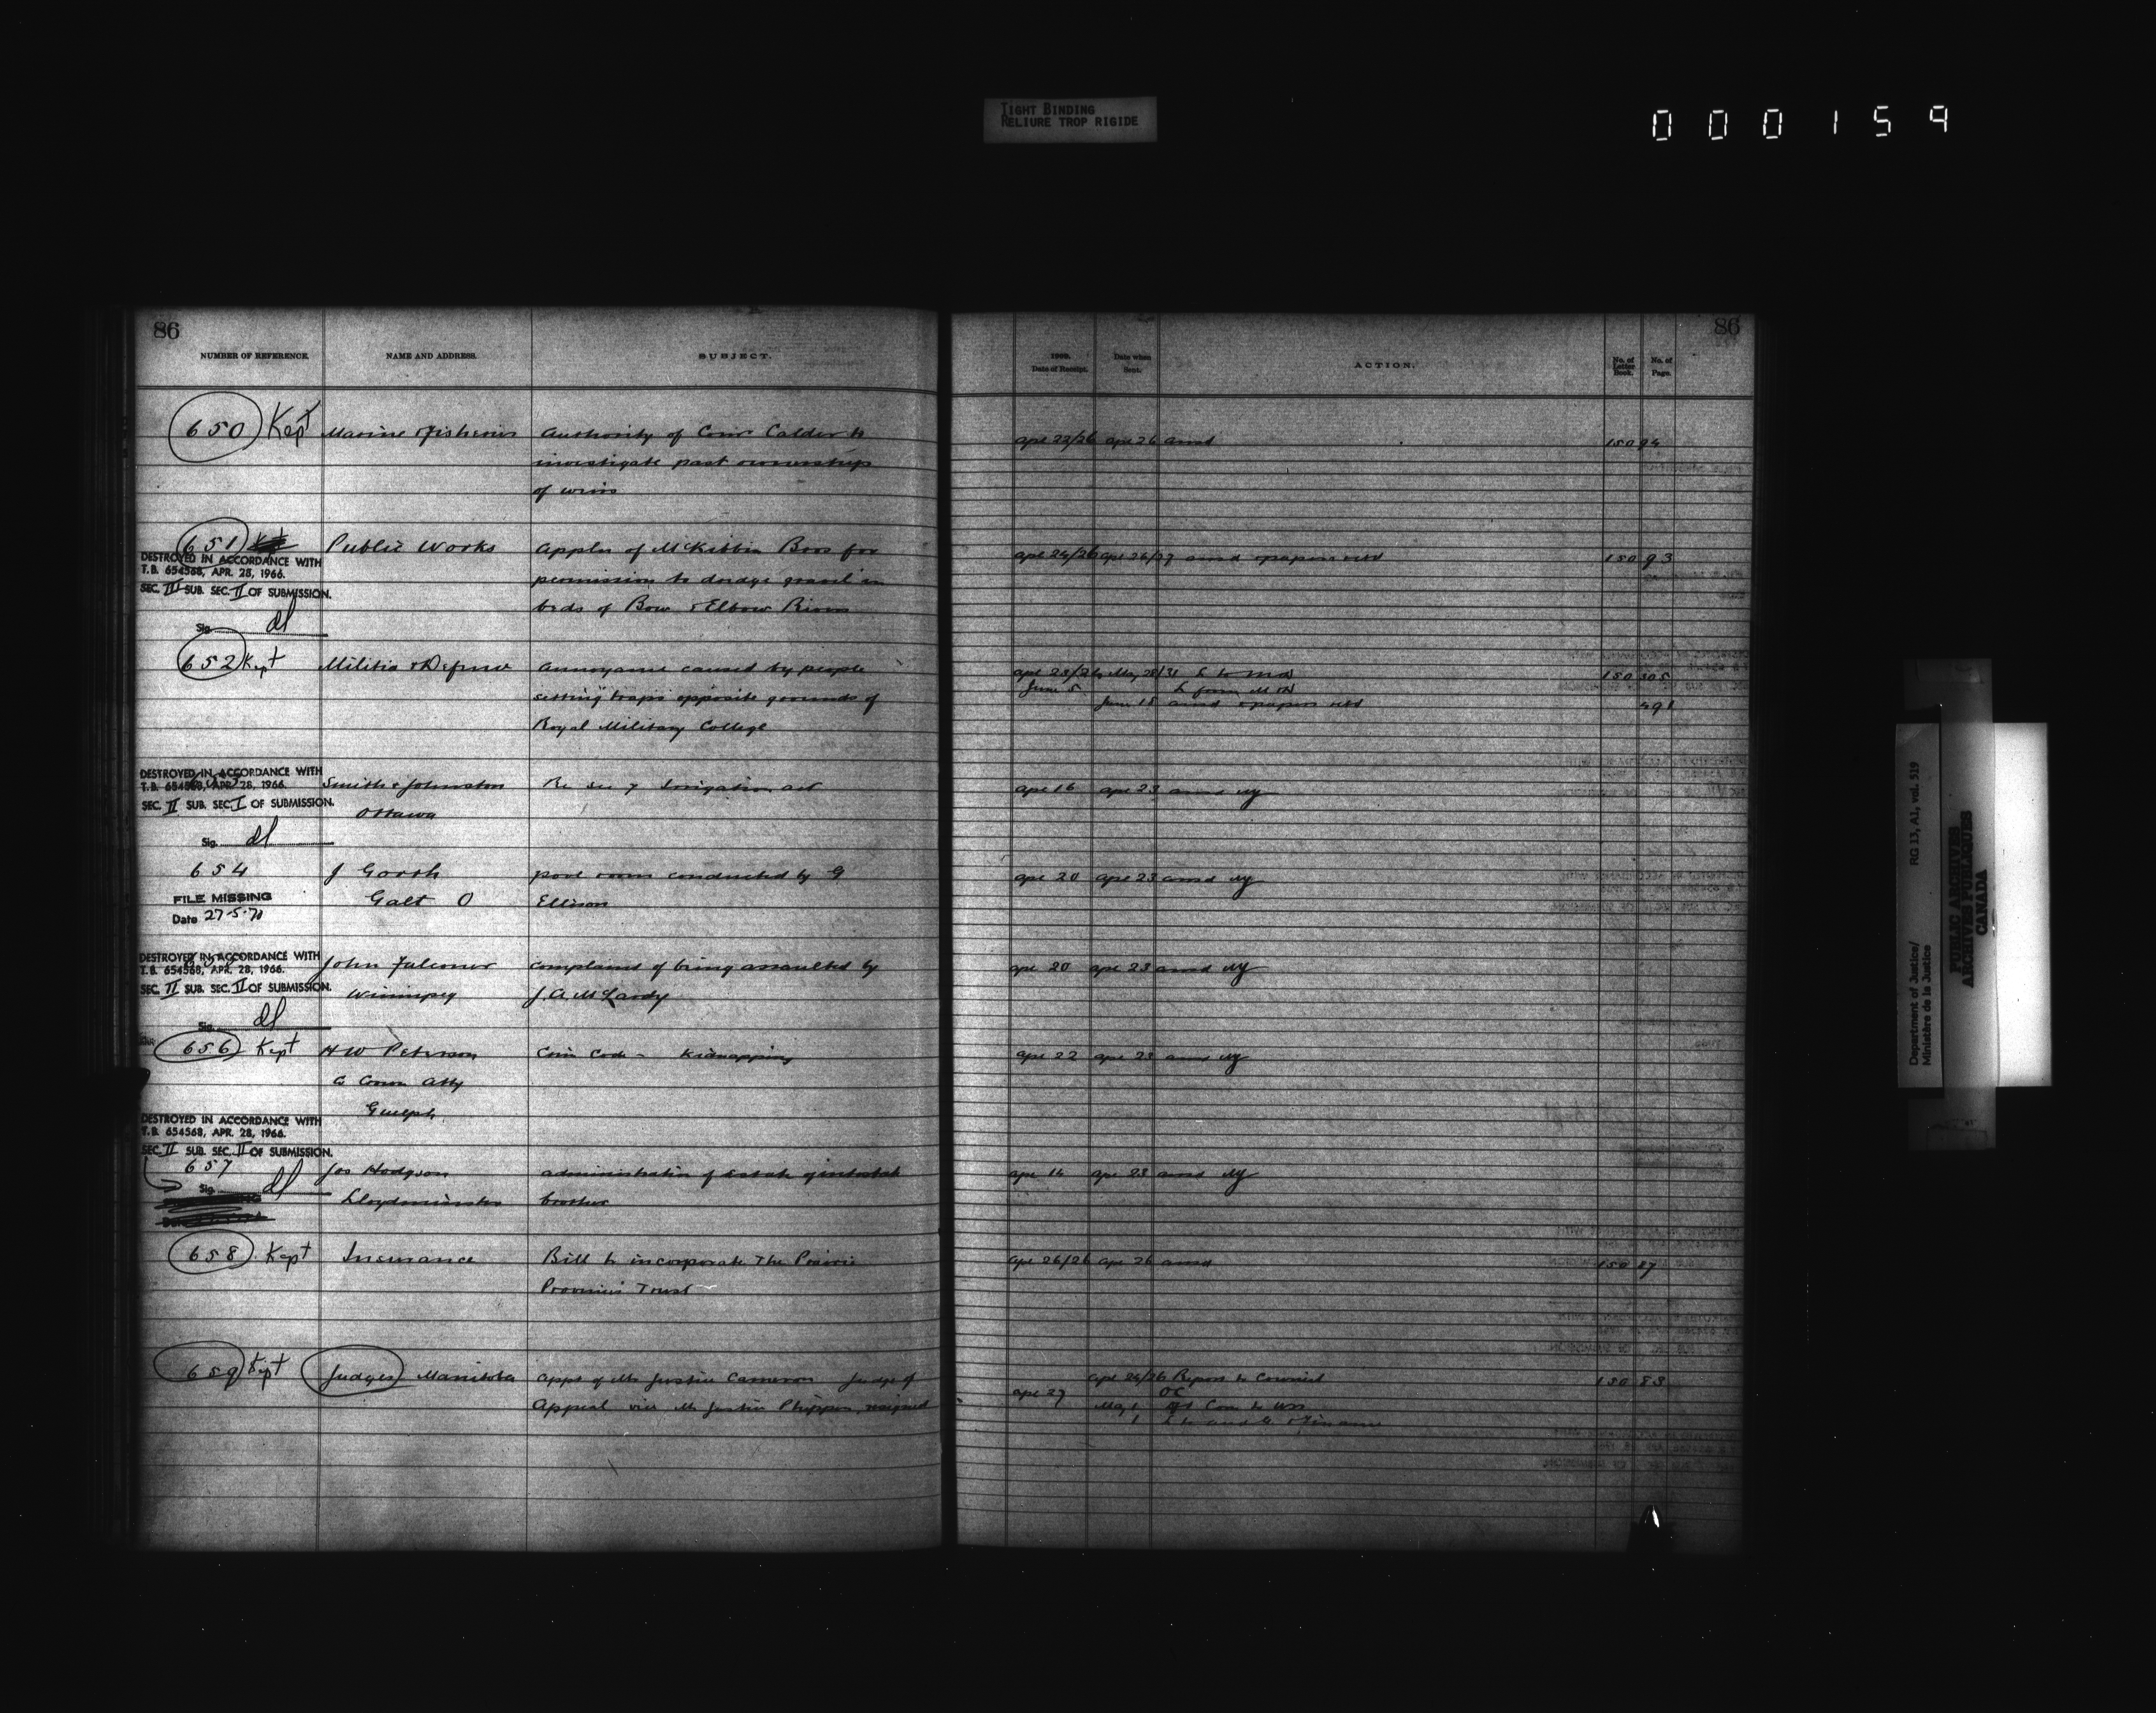 TIGHT BINDING
RELIURE TROP RIGIDE
000159
86
NUMBER OF REFERENCE.
NAME AND ADDRESS.
SUBJECT.
650 Kept
Marine & Fisheries
Authority of Comr Calder to
investigate past ownership
of weirs
651
DESTROYED IN ACCORDANCE WITH
T.B. 654568, APR. 28, 1966.
SEC. III SUB. SEC. II OF SUBMISSION.
Sig.
Public Works
Appln of McKibbin Bros for
permission to dredge gravel in
beds of Bow & Elbow Rivers
652 Kept
Militia & Defence
Annoyance caused by people
setting traps opposite grounds of
Royal Military College
DESTROYED IN ACCORDANCE WITH
T.B. 654568, APR. 28, 1966.
SEC. II SUB. SEC. I OF SUBMISSION.
Sig.
Smith & Johnston
Ottawa
Re Sec 7 Irrigation act
654
FILE MISSING
Date 27-5-70
Galt O
pool room conducted by G
Ellison
DESTROYED IN ACCORDANCE WITH
T.B. 654568, APR. 28, 1966.
SEC. II SUB. SEC. II OF SUBMISSION.
Sig.
John Falconer
Winnipeg
complained of being assaulted by
656 Kept
H W Peterson
Co Crown Atty
Guelph
Crim Code - Kidnapping
DESTROYED IN ACCORDANCE WITH
T.B. 654568, APR. 28, 1966.
SEC. II SUB. SEC. II OF SUBMISSION.
657
Sig.
Jos Hodgson
Lloydminster
administration of Estate of intestate
brother
658 Kept
Insurance
Bill to incorporate The Prairie
Provinces Trust
659 Kept
Judges Manitoba
Appt of Mr Justice Cameron Judge of
Appeal vice Mr Justice Phippen, resigned
86
1909.
Date of Receipt.
Date when
Sent.
ACTION.
No. of
Letter
Book.
No. of
Page.
apl 22/26 apl 26 ansd 150 94
apl 24/26 apl 26/27 ansd & papers retd 150 93
May 28/31 L to M&D 150 305
June 5 L from M&D
June 15 ansd & papers retd 491
apl 16 apl 23 ansd
apl 20 apl 23 ansd
apl 20 apl 23 ansd
apl 22 apl 23 ansd
apl 16 apl 23 ansd
apl 26/26 apl 26 ansd 150 87
apl 26/26 Report to Council 150 83
apl 27 OC
May 1
Department of Justice/
Ministère de la Justice
RG 13, A1, vol. 519
PUBLIC ARCHIVES
ARCHIVES PUBLIQUES
CANADA